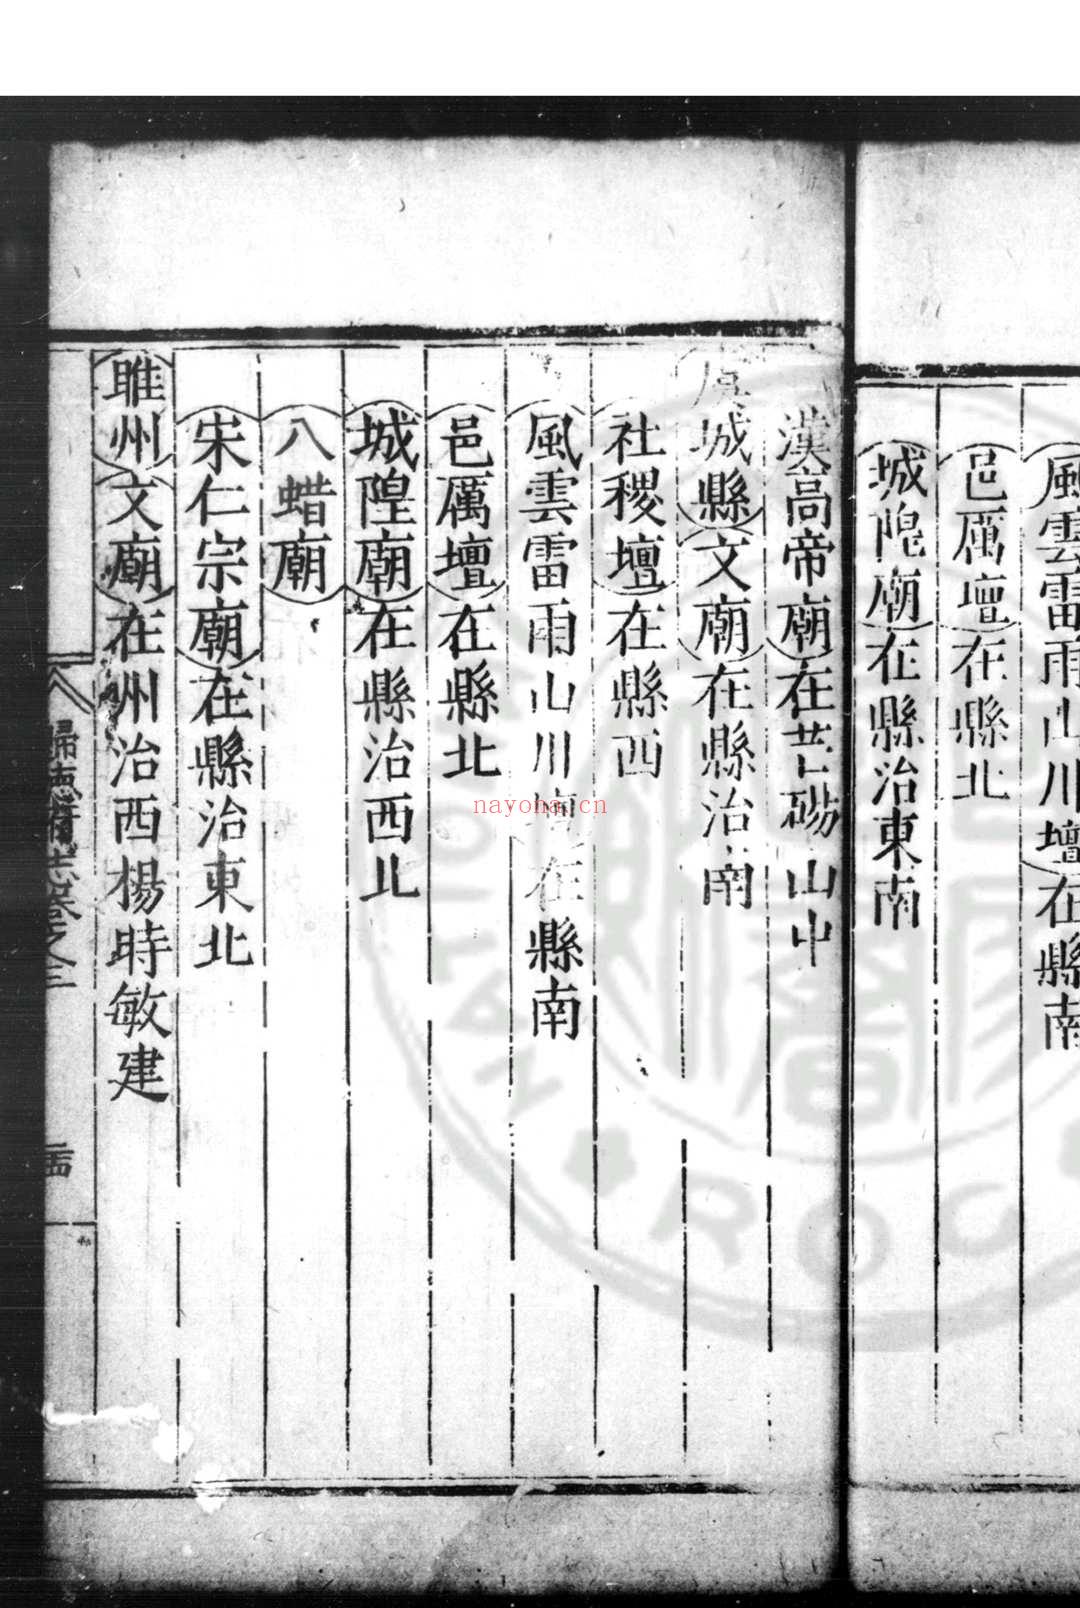 風雲雷雨山川壇在縣南
邑厲壇在縣北
城隍廟在縣治東南
漢高帝廟在芒碭山中
虞城縣文廟在縣治南
社稷壇在縣西
風雲雷雨山川壇在縣南
邑厲壇在縣北
城隍廟在縣治西北
八蜡廟
宋仁宗廟在縣治東北
睢州文廟在州治西楊時敏建
歸德府志卷之三
nayona.cn
ROC